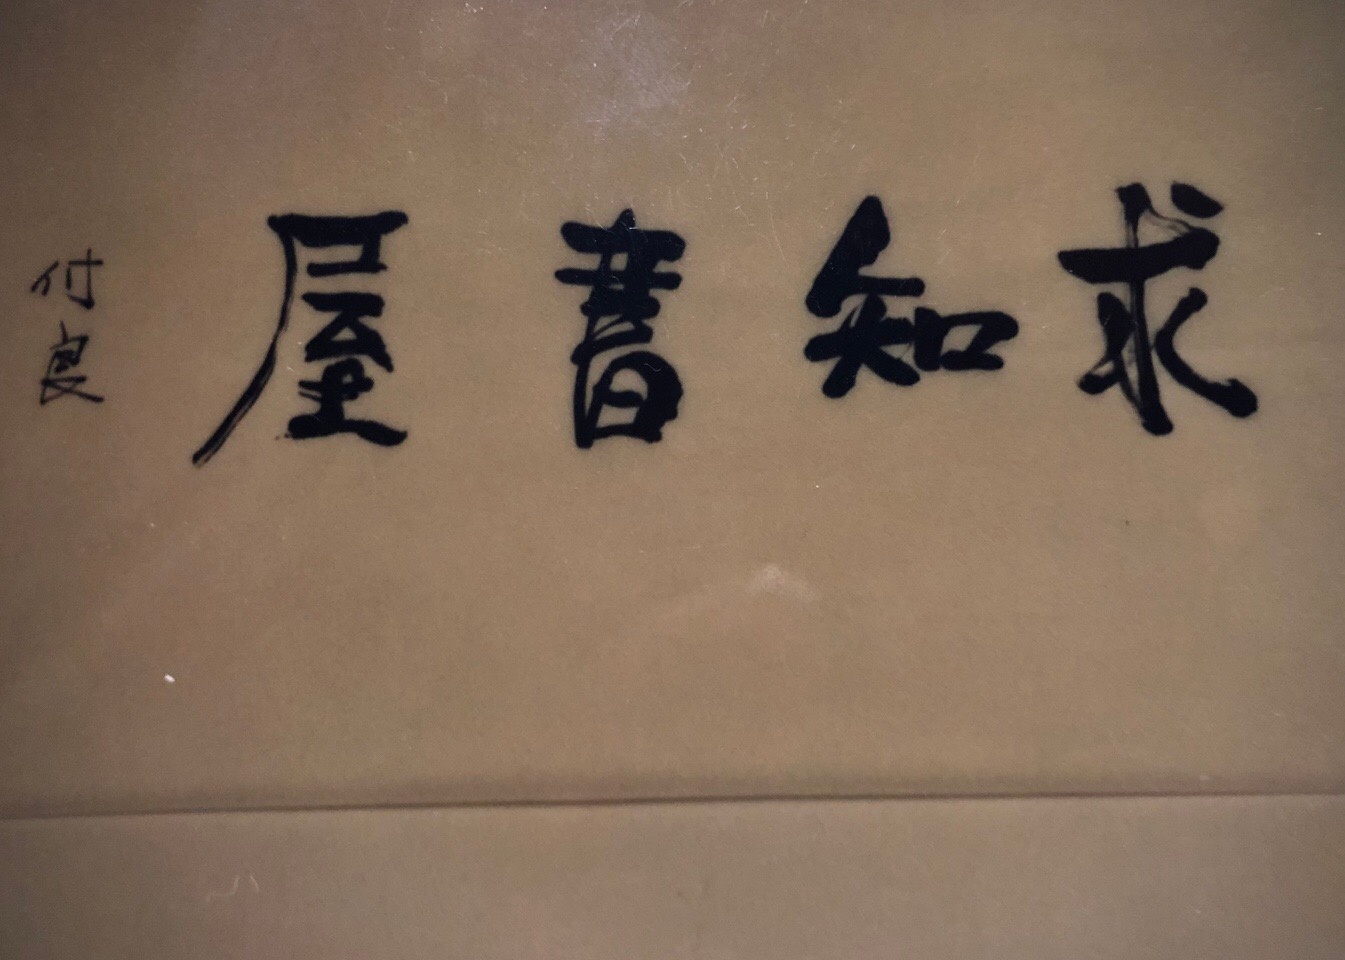 求知書屋
付良